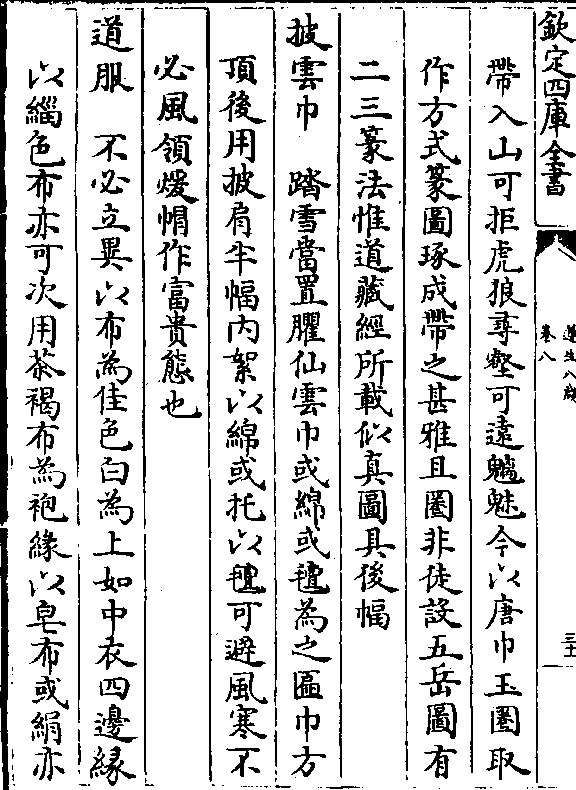 欽定四庫全書
遵生八牋
卷八
三十
帶入山可拒虎狼尋壑可遠魑魅今以唐巾玉圈取
作方式篆圖琢成帶之甚雅且圈非徒設五岳圖有
二三篆法惟道藏經所載似真圖具後幅
披雲巾　踏雪當置臞仙雲巾或綿或氊為之匾巾方
頂後用披肩半幅内絮以綿或托以氊可避風寒不
必風領煖帽作富貴態也
道服　不必立異以布為佳色白為上如中衣四邊緣
以緇色布亦可次用茶褐布為袍緣以皂布或絹亦